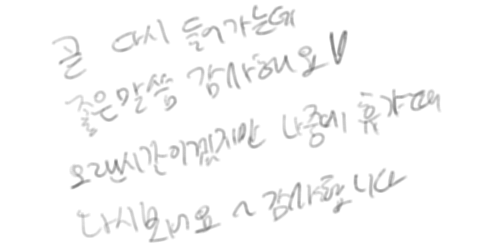 곧 다시 들어가는데
좋은말씀 감사해요♡
오랜시간이겠지만 나중에 휴가때
다시봐요~감사합니다